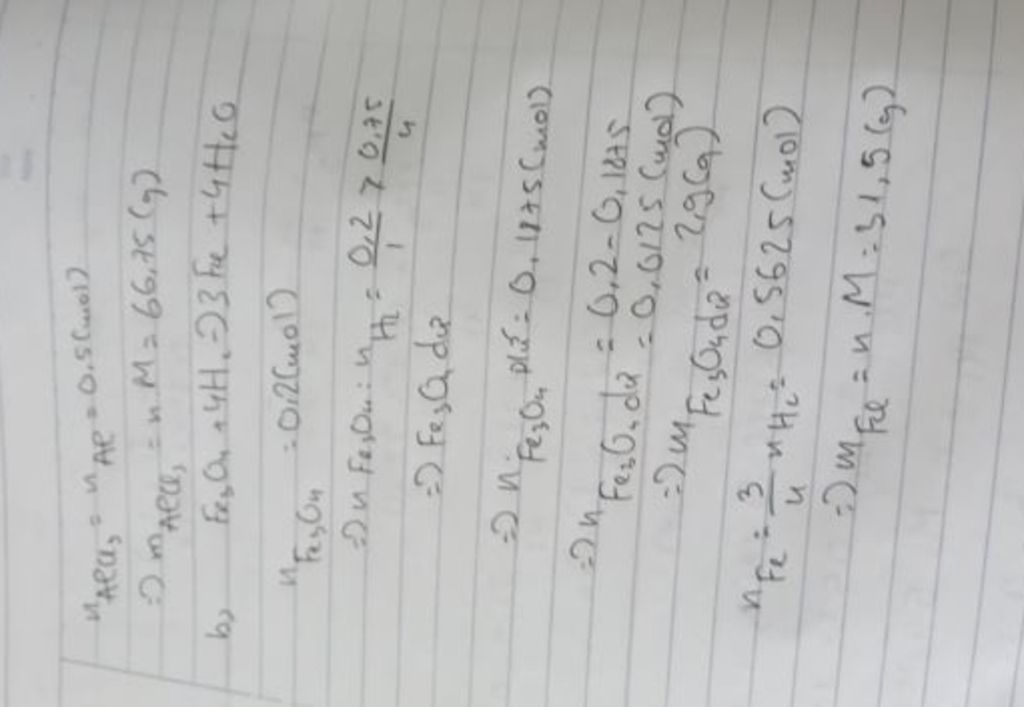 n AlCl₃ = n Al = 0.5(mol)
=> m AlCl₃ = n.M = 66,75(g)
b, Fe₃O₄ + 4H₂ => 3Fe + 4H₂O
n Fe₃O₄ = 0,2(mol)
=> n Fe₃O₄ : n H₂ = 0,2/1 > 0,75/4
=> Fe₃O₄ dư
=> n Fe₃O₄ pứ = 0,1875(mol)
=> n Fe₃O₄ dư = 0,2-0,1875
= 0,0125(mol)
=> m Fe₃O₄ dư = 2,9(g)
n Fe = 3/4 n H₂ = 0,5625(mol)
=> m Fe = n.M = 31,5(g)